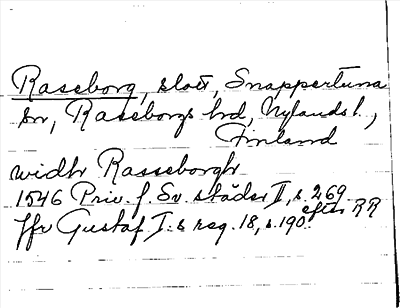 Raseborg, slott, Snappertuna
sn, Raseborgs hd, Nylands l.,
Finland
widh Rasseborgh
1546 Priv. f. Sv. städer II, s. 269
efter RR
Jfr Gustaf I:s reg. 18, s. 190.